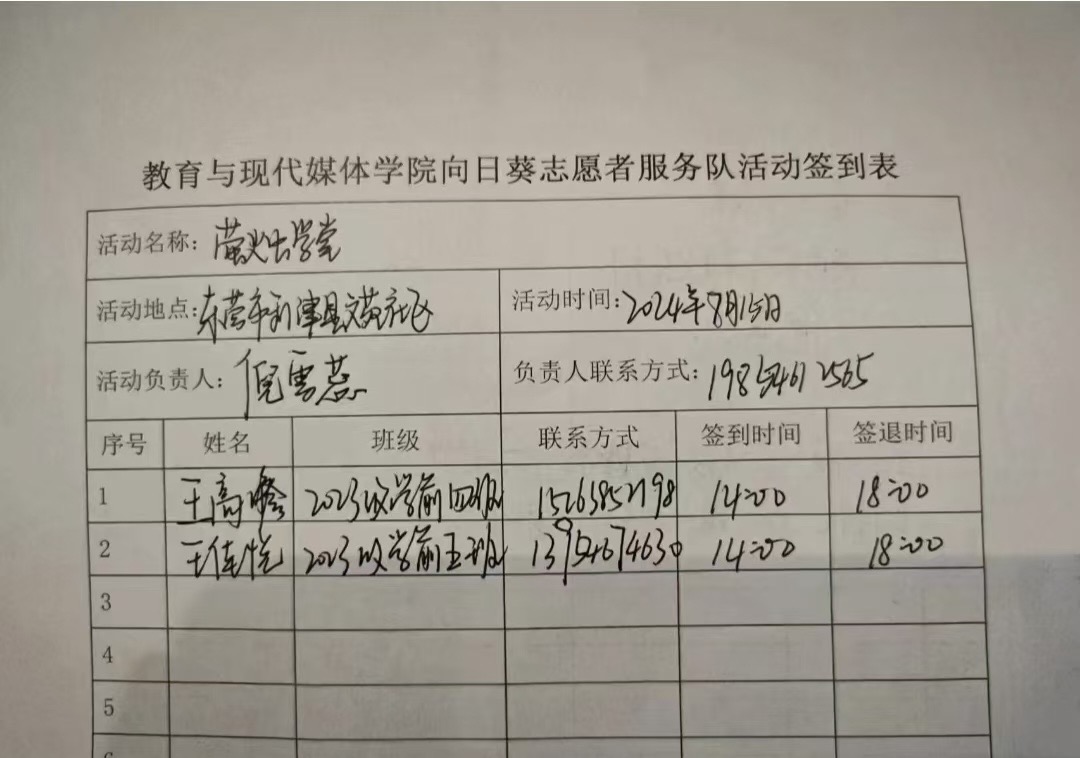 教育与现代媒体学院向日葵志愿者服务队活动签到表
活动名称: 萤火虫学堂
活动地点: 东营市利津县文苑社区 活动时间: 2024年8月15日
活动负责人: 倪雪蕊 负责人联系方式:
序号 姓名 班级 联系方式 签到时间 签退时间
1 王高 2023级学前四班 15263852198 14:00 18:00
2 王佳悦 2023级学前五班 13954674630 14:00 18:00
3
4
5
6